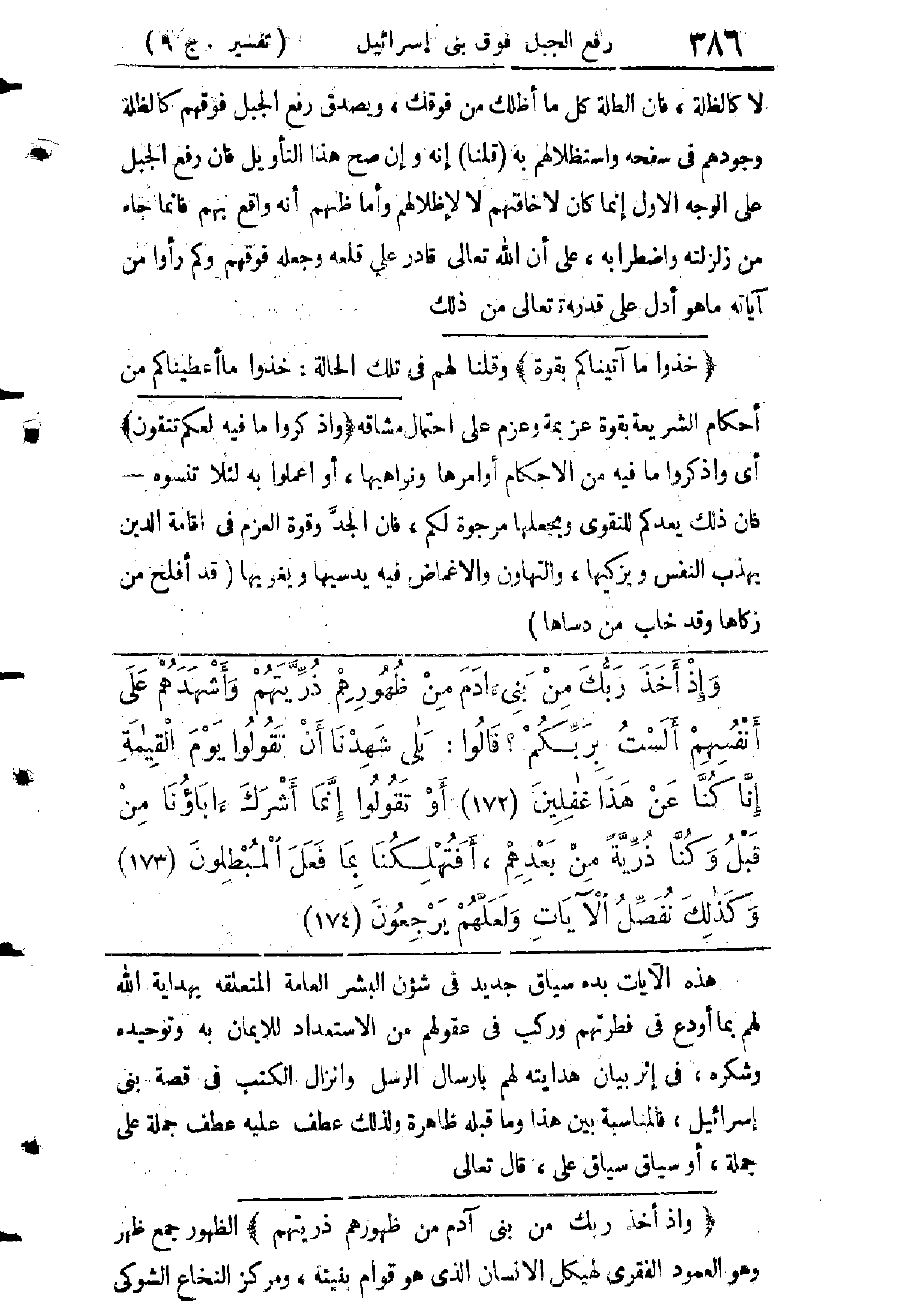 ٣٨٦ رفع الجبل فوق بنى إسرائيل (تفسير . ج ٩)
لا كالظلة ، فان الظلة كل ما أظلك من فوقك ، ويصدق رفع الجبل فوقهم كالظلة
وجودهم فى سفحه واستظلالهم به (قلنا) إنه وإن صح هذا التأويل فان رفع الجبل
على الوجه الاول إنما كان لاخافتهم لا لإظلالهم وأما ظنهم أنه واقع بهم فانما جاء
من زلزلته واضطرابه ، على أن الله تعالى قادر علي قلعه وجعله فوقهم وكم رأوا من
آياته ماهو أدل على قدرته تعالى من ذلك
﴿ خذوا ما آتيناكم بقوة ﴾ وقلنا لهم فى تلك الحالة : خذوا ماأعطيناكم من
أحكام الشريعة بقوة عزيمة وعزم على احتمال مشاقه ﴿واذكروا ما فيه لعلكم تتقون﴾
أى واذكروا ما فيه من الاحكام أوامرها ونواهيها ، أو اعملوا به لئلا تنسوه —
فان ذلك يعدكم للتقوى ويجعلها مرجوة لكم ، فان الجدَّ وقوة العزم فى اقامة الدين
يهذب النفس ويزكيها ، والتهاون والاغماض فيه يدسيها ويغويها ( قد أفلح من
زكاها وقد خاب من دساها )
وَإِذْ أَخَذَ رَبُّكَ مِنْ بَنِي ءادَمَ مِنْ ظُهُورِهِمْ ذُرِّيَّتَهُمْ وَأَشْهَدَهُمْ عَلَى
أَنْفُسِهِمْ أَلَسْتُ بِرَبِّكُمْ ؟ قَالُوا : بَلَى شَهِدْنَا أَنْ تَقُولُوا يَوْمَ الْقِيٰمَةِ
إِنَّا كُنَّا عَنْ هَذَا غٰفِلِينَ (١٧٢) أَوْ تَقُولُوا إِنَّمَا أَشْرَكَ ءابَاؤُنَا مِنْ
قَبْلُ وَكُنَّا ذُرِّيَّةً مِنْ بَعْدِهِمْ ، أَفَتُهْلِكُنَا بِمَا فَعَلَ ٱلْمُبْطِلُونَ (١٧٣)
وَكَذٰلِكَ نُفَصِّلُ ٱلْآيَاتِ وَلَعَلَّهُمْ يَرْجِعُونَ (١٧٤)
هذه الآيات بدء سياق جديد فى شؤن البشر العامة المتعلقه بهداية الله
لهم بما أودع فى فطرتهم وركب فى عقولهم من الاستعداد للايمان به وتوحيده
وشكره ، فى إثر بيان هدايته لهم بارسال الرسل وانزال الكتب فى قصة بنى
إسرائيل ، فالمناسبة بين هذا وما قبله ظاهرة ولذلك عطف عليه عطف جملة على
جملة ، أو سياق سياق على ، قال تعالى
﴿ واذ أخذ ربك من بنى آدم من ظهورهم ذريتهم ﴾ الظهور جمع ظهر
وهو العمود الفقرى لهيكل الانسان الذى هو قوام بنيته ، ومركز النخاع الشوكى